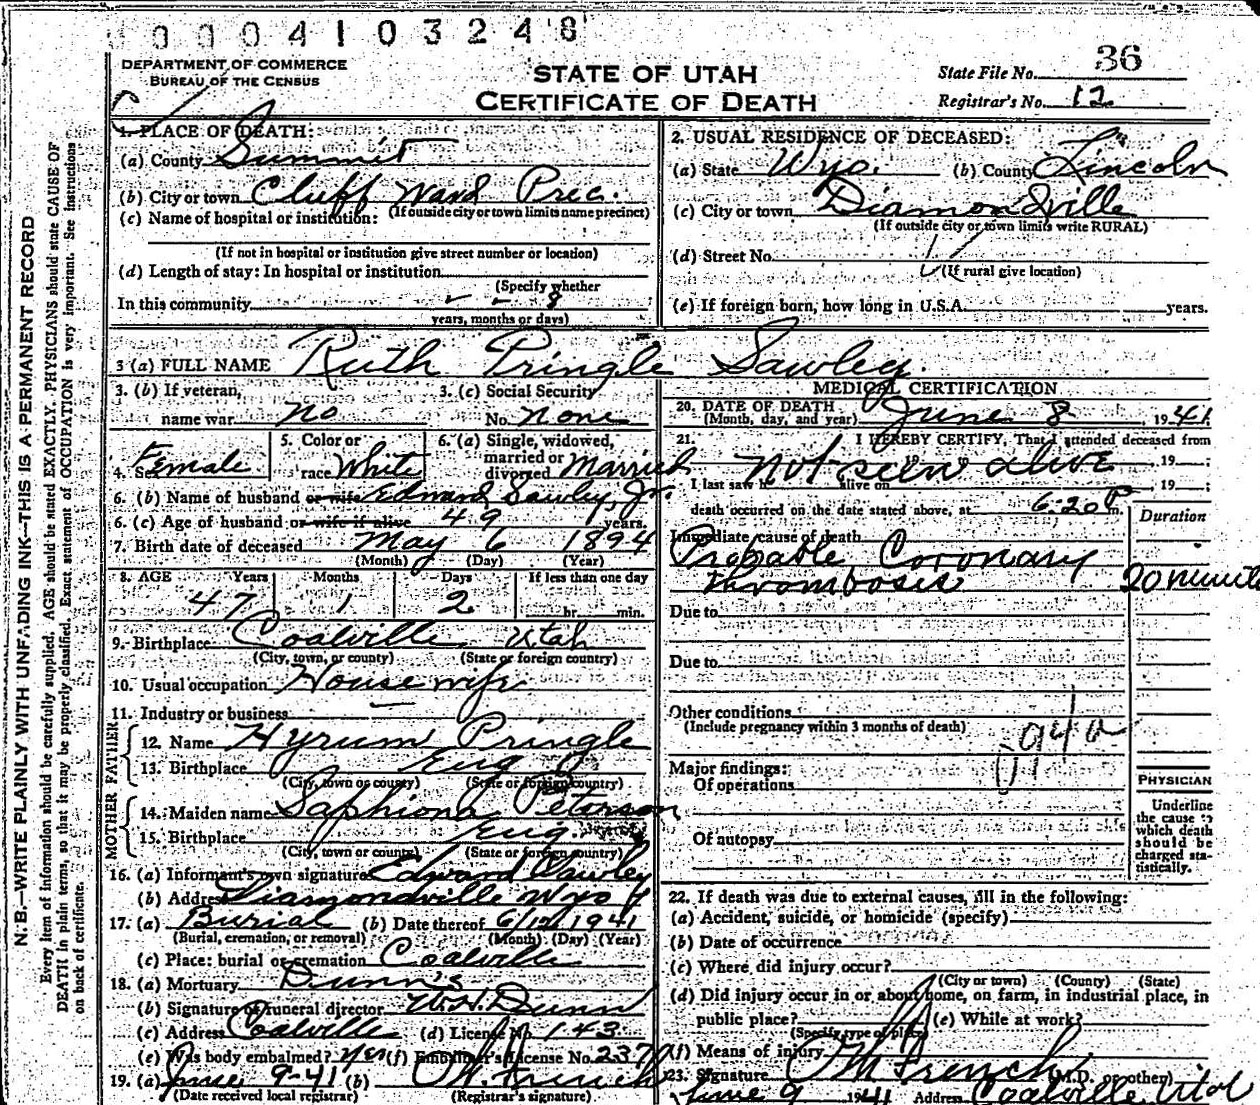 0004103248
DEPARTMENT OF COMMERCE
BUREAU OF THE CENSUS
STATE OF UTAH
CERTIFICATE OF DEATH
State File No. 36
Registrar's No. 12
N. B.—WRITE PLAINLY WITH UNFADING INK—THIS IS A PERMANENT RECORD
Every item of information should be carefully supplied. AGE should be stated EXACTLY. PHYSICIANS should state CAUSE OF
DEATH in plain terms, so that it may be properly classified. Exact statement of OCCUPATION is very important. See instructions
on back of certificate.
1. PLACE OF DEATH:
(a) County Summit
(b) City or town Cluff Ward Prec.
(If outside city or town limits name precinct)
(c) Name of hospital or institution:
(If not in hospital or institution give street number or location)
(d) Length of stay: In hospital or institution
(Specify whether
In this community - - 8
years, months or days)
2. USUAL RESIDENCE OF DECEASED:
(a) State Wyo. (b) County Lincoln
(c) City or town Diamondville
(If outside city or town limits write RURAL)
(d) Street No.
(If rural give location)
(e) If foreign born, how long in U.S.A. years.
3 (a) FULL NAME Ruth Pringle Sawley.
3. (b) If veteran,
name war no
3. (c) Social Security
No. none
4. Sex Female
5. Color or
race White
6. (a) Single, widowed,
married or
divorced Married
6. (b) Name of husband or wife Edward Sawley, Jr.
6. (c) Age of husband or wife if alive 49 years.
7. Birth date of deceased May 6 1894
(Month) (Day) (Year)
8. AGE Years Months Days If less than one day
47 1 2 hr. min.
9. Birthplace Coalville Utah
(City, town, or county) (State or foreign country)
10. Usual occupation Housewife
11. Industry or business —
FATHER
12. Name Hyrum Pringle
13. Birthplace Eng
(City, town or county) (State or foreign country)
MOTHER
14. Maiden name Saphiona Peterson
15. Birthplace Eng
(City, town or county) (State or foreign country)
16. (a) Informant's own signature Edward Sawley
(b) Address Diamondville Wyo
17. (a) Burial (b) Date thereof 6/12/1941
(Burial, cremation, or removal) (Month) (Day) (Year)
(c) Place: burial or cremation Coalville
18. (a) Mortuary Dunn's
(b) Signature of funeral director W.H. Dunn
(c) Address Coalville (d) License No. 143
(e) Was body embalmed? Yes (f) Embalmer's License No. 237
19. (a) June 9-41 (b) O.M. French
(Date received local registrar) (Registrar's signature)
MEDICAL CERTIFICATION
20. DATE OF DEATH
(Month, day, and year) June 8, 1941
21. I HEREBY CERTIFY, That I attended deceased from
not seen alive, 19 ;
I last saw h alive on , 19 ;
death occurred on the date stated above, at 6:20 P m.
Duration
Immediate cause of death
Probable Coronary
thrombosis 20 minute
Due to
Due to
Other conditions
(Include pregnancy within 3 months of death)
94a
Major findings:
Of operations
Of autopsy
PHYSICIAN
Underline
the cause to
which death
should be
charged sta-
tistically.
22. If death was due to external causes, fill in the following:
(a) Accident, suicide, or homicide (specify)
(b) Date of occurrence
(c) Where did injury occur?
(City or town) (County) (State)
(d) Did injury occur in or about home, on farm, in industrial place, in
public place? (e) While at work?
(Specify type of place)
(f) Means of injury
23. Signature O M French (M.D. or other)
June 9 1941 Address Coalville Utah